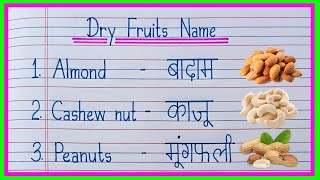 Dry Fruits Name
1. Almond - बादाम
2. Cashew nut - काजू
3. Peanuts - मूंगफली